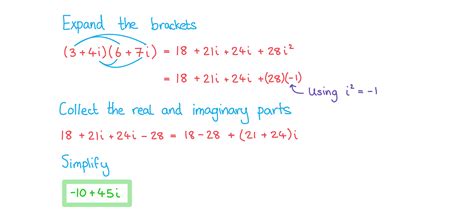 Expand the brackets
(3+4i)(6+7i) = 18 + 21i + 24i + 28i²
= 18 + 21i + 24i + (28)(-1)
Using i² = -1
Collect the real and imaginary parts
18 + 21i + 24i - 28 = 18 - 28 + (21 + 24)i
Simplify
-10 + 45i